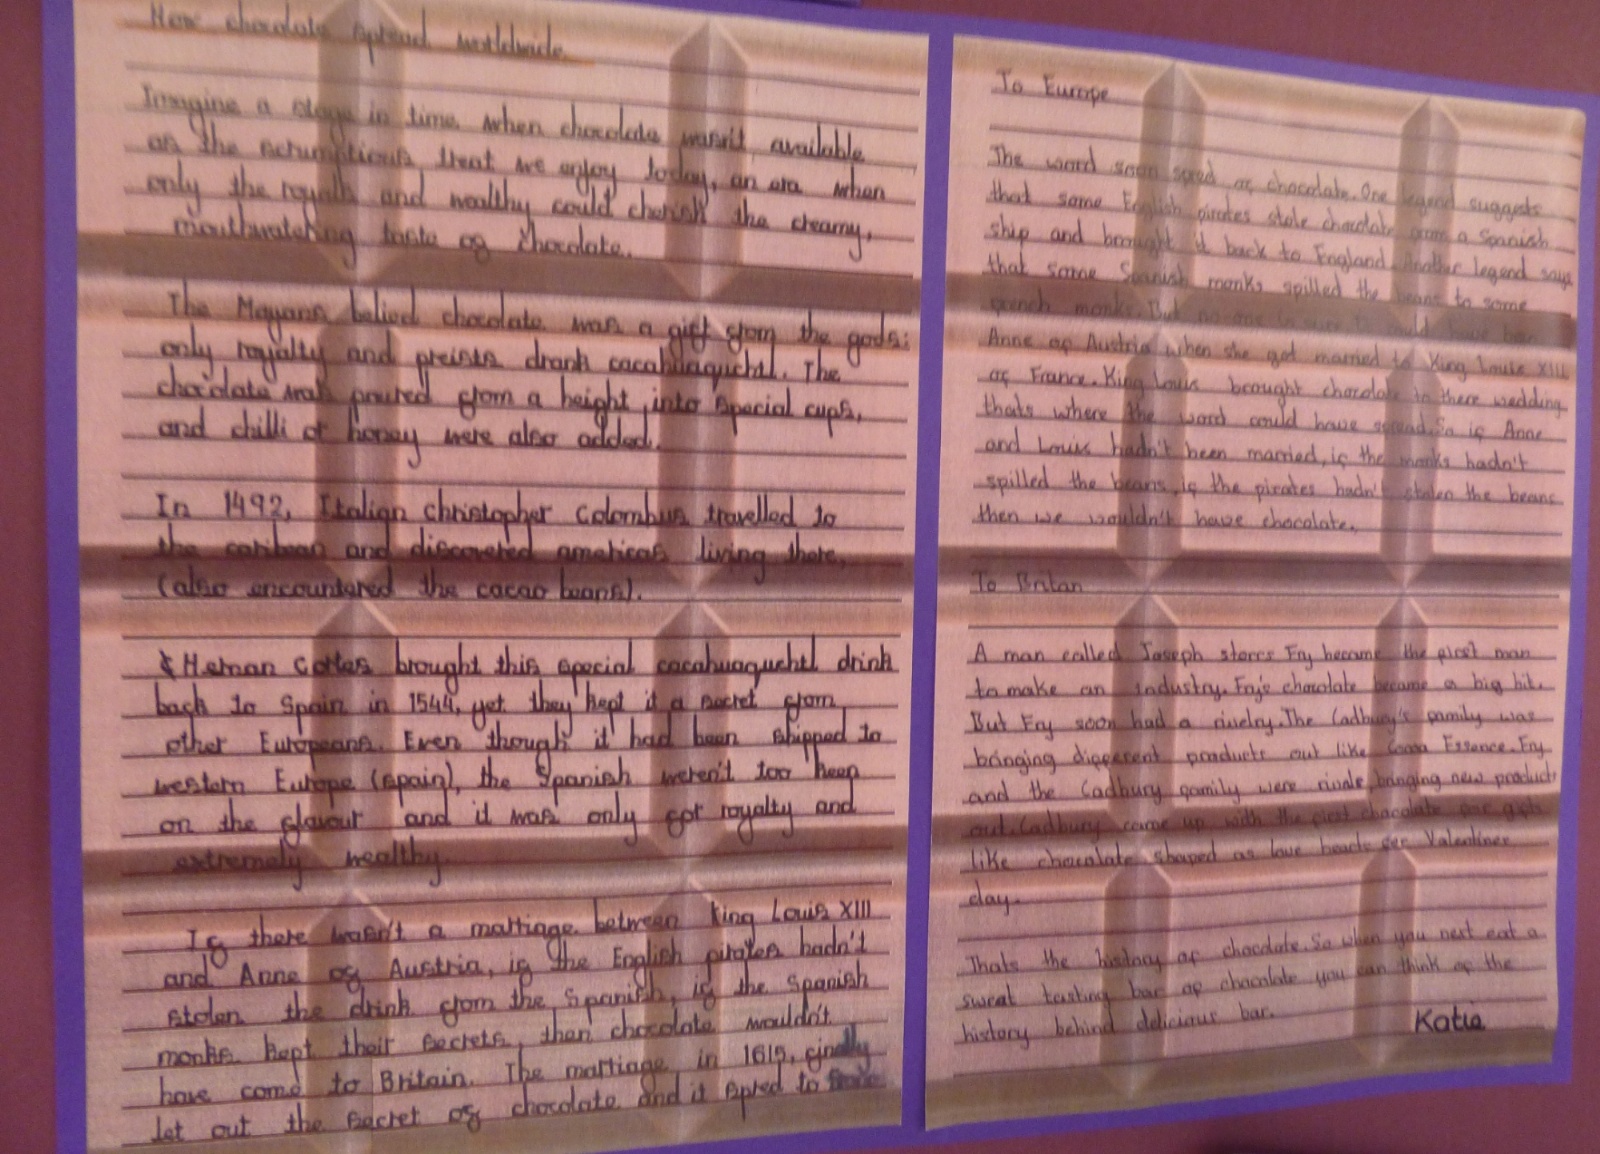 How chocolate spread worldwide.
Imagine a stage in time when chocolate wasn't available
as the scrumptious treat we enjoy today, an era when
only the royals and wealthy could cherish the creamy,
mouthwatching taste of chocolate.
The Mayans belied chocolate was a gift from the gods:
only royalty and preists drank cacahuaquchtl. The
chocolate was poured from a height into special cups,
and chilli or honey were also added.
In 1492, Italian christopher Colombus travelled to
the caribean and discovered americas living there,
(also encountered the cacao beans).
Hernan Cortes brought this special cacahuaquchtl drink
back to Spain in 1544, yet they kept it a secret from
other Europeans. Even though it had been shipped to
western Europe (spain), the Spanish weren't too keen
on the flavour and it was only for royalty and
extremely wealthy.
If there wasn't a marriage between king Louis XIII
and Anne of Austria, if the English pirates hadn't
stolen the drink from the Spanish, if the Spanish
monks kept their secrets, then chocolate wouldn't
have come to Britain. The marriage in 1615, finally
let out the secret of chocolate and it spred to
To Europe
The word soon spred of chocolate. One legend suggests
that some English pirates stole chocolate from a Spanish
ship and brought it back to England. Another legend says
that some Spanish monks spilled the beans to some
french monks. But no-one is sure. It could have been
Anne of Austria when she got married to King Louis XIII
of France. King Louis brought chocolate to there wedding
thats where the word could have spread. So if Anne
and Louis hadn't been married, if the monks hadn't
spilled the beans, if the pirates hadn't stolen the beans
then we wouldn't have chocolate.
To Britan
A man called Joseph storrs Fry became the first man
to make an industry. Fry's chocolate became a big hit.
But Fry soon had a rivelry. The Cadbury's family was
bringing different products out like Cocoa Essence. Fry
and the Cadbury family were rivals, bringing new products
out. Cadbury came up with the first chocolate for gifts
like chocolate shaped as love hearts for Valentines
day.
Thats the history of chocolate. So when you next eat a
sweat tasting bar of chocolate you can think of the
history behind delicious bar.
Katie